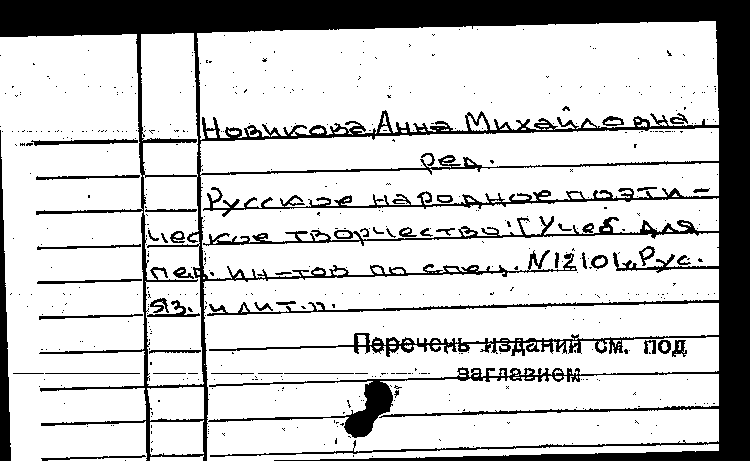 Новикова, Анна Михайловна,
ред.
Русское народное поэти-
ческое творчество: [Учеб. для
пед. ин-тов по спец. N12101 „Рус.
яз. и лит."].
Перечень изданий см. под
заглавием